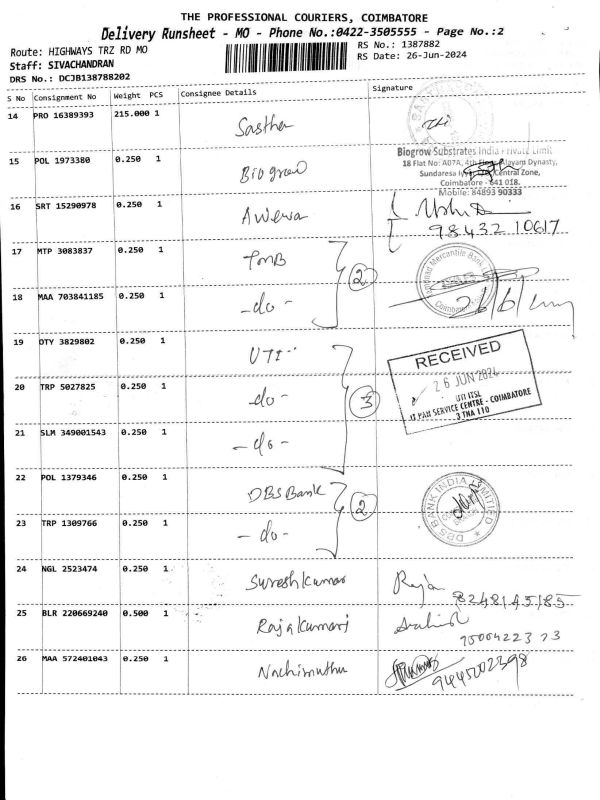 THE PROFESSIONAL COURIERS, COIMBATORE
Delivery Runsheet - MO - Phone No.:0422-3505555 - Page No.:2
Route: HIGHWAYS TRZ RD MO
RS No.: 1387882
Staff: SIVACHANDRAN
RS Date: 26-Jun-2024
DRS No.: DCJB138788202
S No Consignment No Weight PCS Consignee Details Signature
14 PRO 16389393 215.000 1 Sastha
Biogrow Substrates India Private Limit
15 POL 1973380 0.250 1 Biogrow
18 Flat No: A07A, 4th Floor, Alayam Dynasty,
Central Zone,
Coimbatore - 641 018.
Mobile: 84893 90333
16 SRT 15290978 0.250 1
98432 10617
17 MTP 3083837 0.250 1 TMB 2
18 MAA 703841185 0.250 1 -do-
19 OTY 3829802 0.250 1 UTI
RECEIVED
26 JUN 2024
UTI ITSL
PAN SERVICE CENTRE - COIMBATORE
3 TNA 110
20 TRP 5027825 0.250 1 -do- 3
21 SLM 349001543 0.250 1 -do-
22 POL 1379346 0.250 1 DBS Bank 2
DBS BANK INDIA LIMITED
23 TRP 1309766 0.250 1 -do-
24 NGL 2523474 0.250 1 Sureshkumar Raja
8248145185
25 BLR 220669240 0.500 1 Rajakumari
26 MAA 572401043 0.250 1 Nachimuthu
9445002398